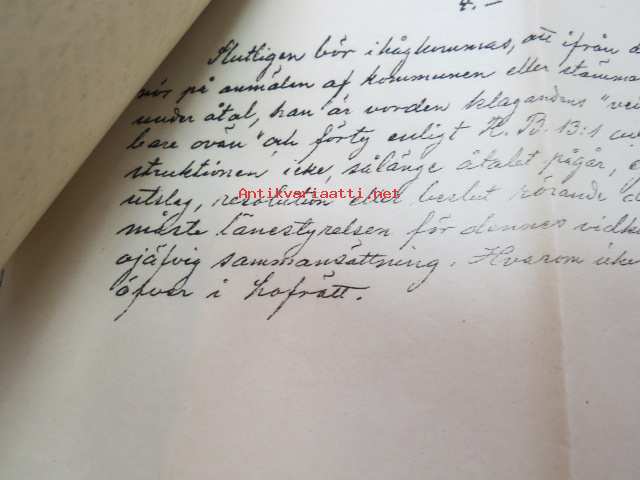 4.—
Slutligen bör ihågkommas, att ifrån d
nör på anmälan af kommunen eller stämma
under åtal, han är vorden klagandens "ve
bare ovän" och förty enligt R. B. 13:1
struktionen, icke, sålänge åtalet pågår,
utslag, resolution eller beslut rörande d
måste länsstyrelsen för dennes vidk
ojäfvig sammansättning. Hvarom icke
öfver i hofrätt.
Antikvariaatti.net